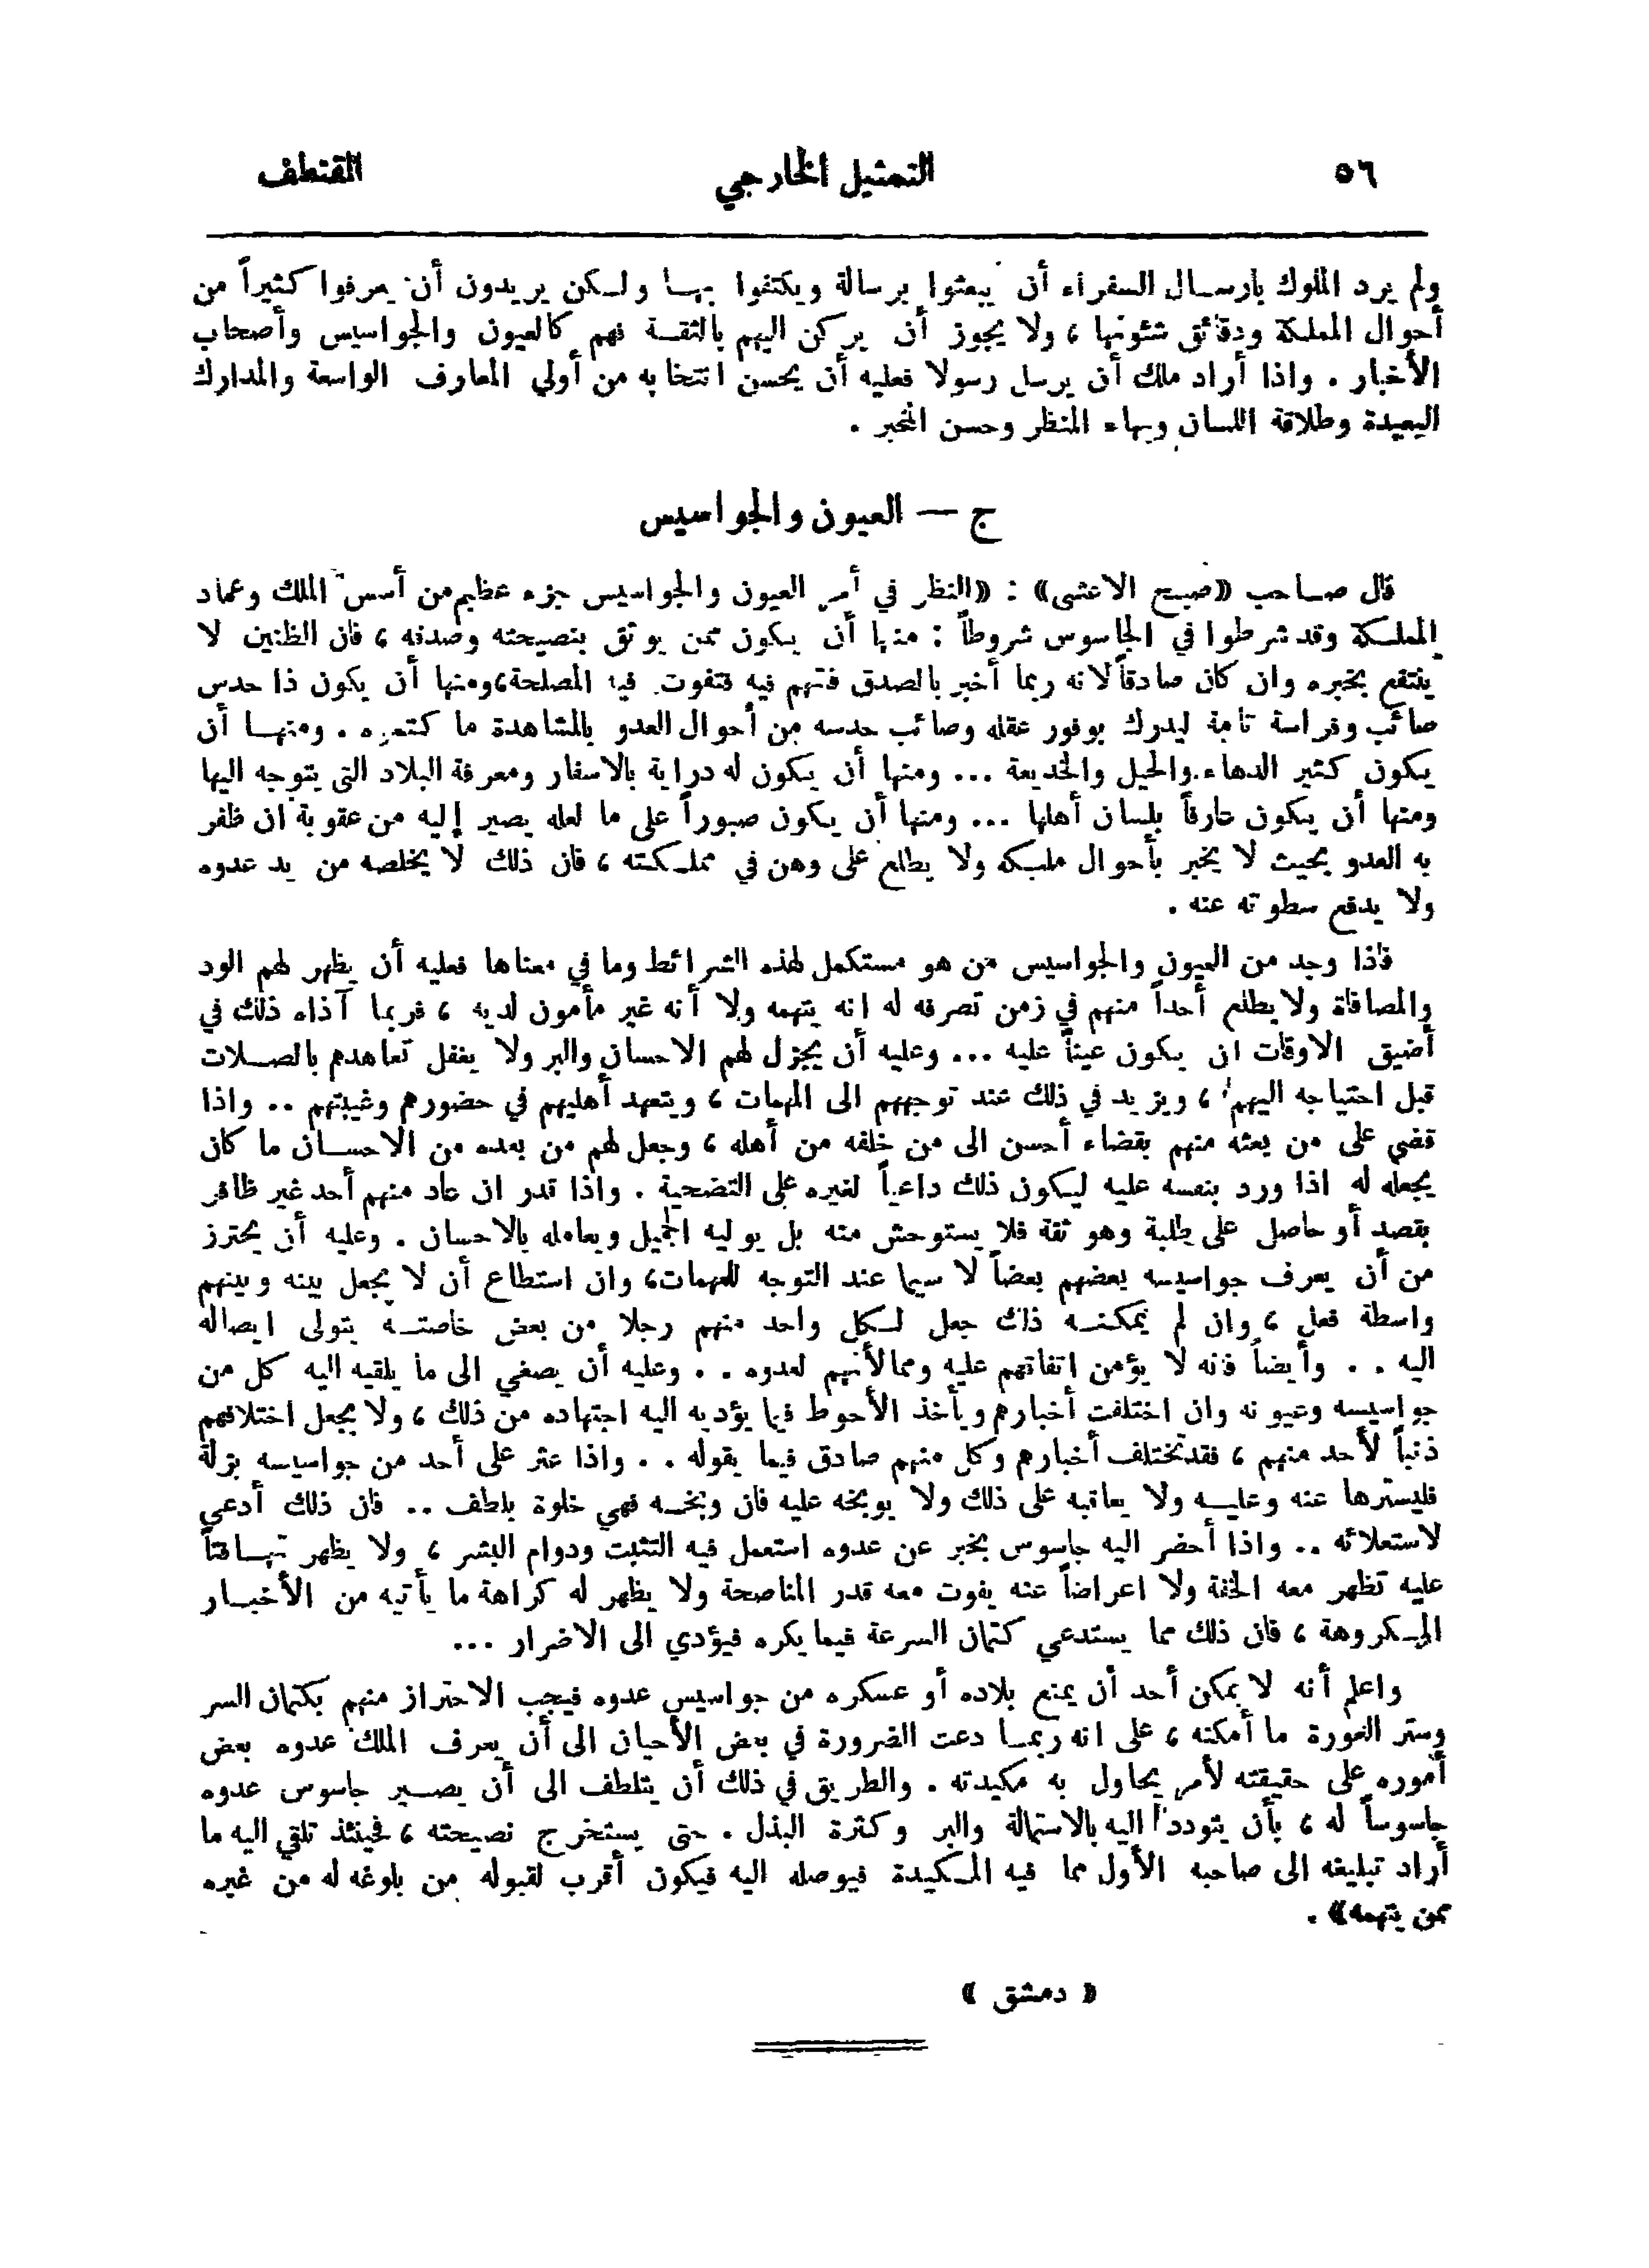 ٥٦ التمثيل الخارجي المقتطف
ولم يرد الملوك بارسال السفراء أن يبعثوا برسالة ويكتفوا بها ولكن يريدون أن يعرفوا كثيراً من
أحوال المملكة ودقائق شئونها ، ولا يجوز أن يركن اليهم بالثقة فهم كالعيون والجواسيس وأصحاب
الأخبار . واذا أراد ملك أن يرسل رسولا فعليه أن يحسن انتخابه من أولي المعارف الواسعة والمدارك
البعيدة وطلاقة اللسان وبهاء المنظر وحسن المخبر .
ج — العيون والجواسيس
قال صاحب «صبح الاعشى» : «النظر في أمر العيون والجواسيس جزء عظيم من أسس الملك وعماد
المملكة وقد شرطوا في الجاسوس شروطاً : منها أن يكون ممن يوثق بنصيحته وصدقه ، فان الظنين لا
ينتفع بخبره وان كان صادقاً لانه ربما أخبر بالصدق فتهم فيه فتفوت فيه المصلحة، ومنها أن يكون ذا حدس
صائب وفراسة تامة ليدرك بوفور عقله وصائب حدسه من أحوال العدو بالمشاهدة ما كتموه . ومنها أن
يكون كثير الدهاء والحيل والخديعة ... ومنها أن يكون له دراية بالاسفار ومعرفة البلاد التي يتوجه اليها
ومنها أن يكون عارفاً بلسان أهلها ... ومنها أن يكون صبوراً على ما لعله يصير إليه من عقوبة ان ظفر
به العدو بحيث لا يخبر بأحوال مليكه ولا يطلع على وهن في مملكته ، فان ذلك لا يخلصه من يد عدوه
ولا يدفع سطوته عنه .
فاذا وجد من العيون والجواسيس من هو مستكمل لهذه الشرائط وما في معناها فعليه أن يظهر لهم الود
والمصافاة ولا يطلع أحداً منهم في زمن تصرفه له انه يتهمه ولا أنه غير مأمون لديه ، فربما آذاه ذلك في
أضيق الاوقات ان يكون عيناً عليه ... وعليه أن يجزل لهم الاحسان والبر ولا يغفل تعاهدهم بالصلات
قبل احتياجه اليهم ، ويزيد في ذلك عند توجههم الى المهمات ، ويتعهد أهليهم في حضورهم وغيبتهم .. واذا
قضي على من بعثه منهم بقضاء أحسن الى من خلفه من أهله ، وجعل لهم من بعده من الاحسان ما كان
يجعله له اذا ورد بنفسه عليه ليكون ذلك داعياً لغيره على التضحية . واذا قدر ان عاد منهم أحد غير ظافر
بقصد أو حاصل على طلبة وهو ثقة فلا يستوحش منه بل يوليه الجميل ويعامله بالاحسان . وعليه أن يحترز
من أن يعرف جواسيسه بعضهم بعضاً لا سيما عند التوجه للمهمات، وان استطاع أن لا يجعل بينه وبينهم
واسطة فعل ، وان لم يمكنه ذلك جعل لكل واحد منهم رجلا من بعض خاصته يتولى ايصاله
اليه . . وأيضاً فانه لا يؤمن اتفاتهم عليه وممالأتهم لعدوه . . وعليه أن يصغي الى ما يلقيه اليه كل من
جواسيسه وعيونه وان اختلفت أخبارهم ويأخذ الأحوط فيما يؤديه اليه اجتهاده من ذلك ، ولا يجعل اختلافهم
ذنباً لأحد منهم ، فقد تختلف أخبارهم وكل منهم صادق فيما يقوله . . واذا عثر على أحد من جواسيسه بزلة
فليسترها عنه وعليه ولا يعاقبه على ذلك ولا يوبخه عليه فان وبخه فهي خلوة بلطف .. فان ذلك أدعى
لاستعلائه .. واذا أحضر اليه جاسوس بخبر عن عدوه استعمل فيه التثبت ودوام البشر ، ولا يظهر تهافتاً
عليه تظهر معه الخفة ولا اعراضاً عنه يفوت معه قدر المناصحة ولا يظهر له كراهة ما يأتيه من الأخبار
المكروهة ، فان ذلك مما يستدعي كتمان السرعة فيما يكره فيؤدي الى الاضرار ...
واعلم أنه لا يمكن أحد أن يمنع بلاده أو عسكره من جواسيس عدوه فيجب الاحتراز منهم بكتمان السر
وستر العورة ما أمكنه ، على انه ربما دعت الضرورة في بعض الأحيان الى أن يعرف الملك عدوه بعض
أموره على حقيقته لأمر يحاول به مكيدته . والطريق في ذلك أن يتلطف الى أن يصير جاسوس عدوه
جاسوساً له ، بأن يتودد اليه بالاستمالة والبر وكثرة البذل . حتى يستخرج نصيحته ، فحينئذ تلقي اليه ما
أراد تبليغه الى صاحبه الأول مما فيه المكيدة فيوصله اليه فيكون أقرب لقبوله من بلوغه له من غيره
ممن يتهمه» .
« دمشق »